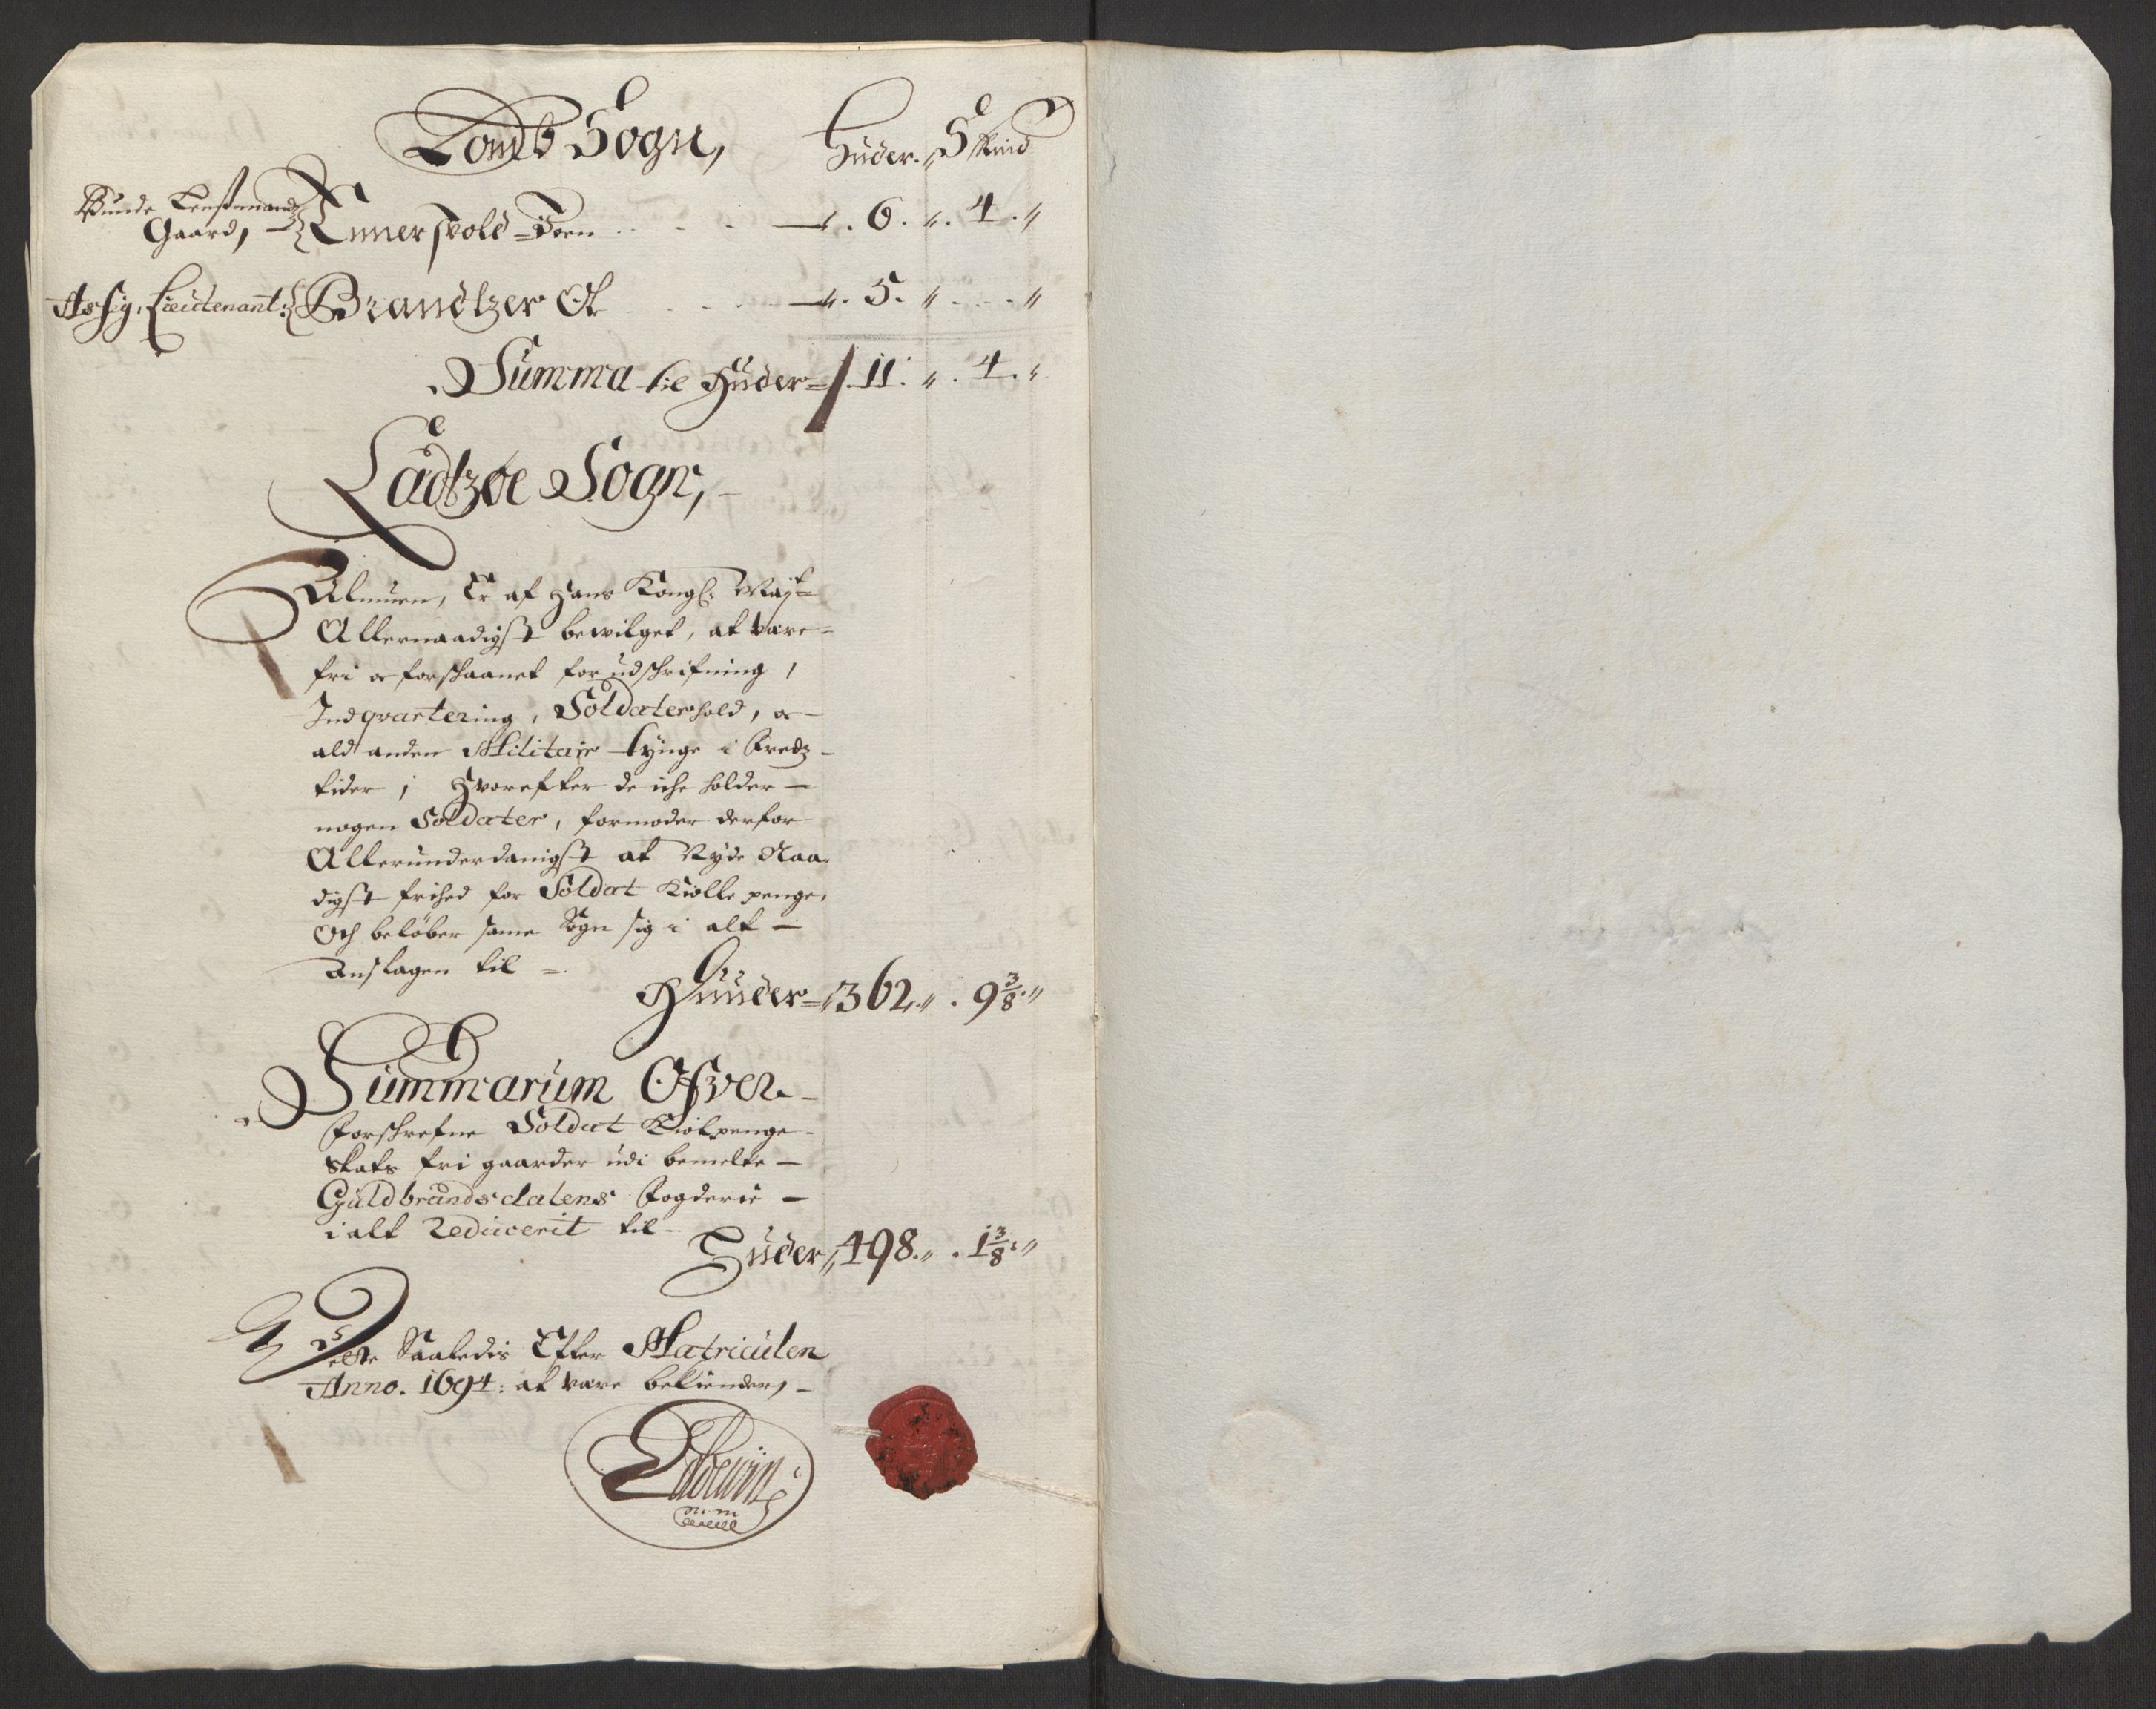 Lomb Sogn, Huder. Skind
Bunde Lensmandz
Gaard, Einerspold-Toen - 6. 4.
Assig. Lieutenant: Brandtzer Ot - 5.
Summa til Huder = 11. 4.
Ladtzøe Sogn,
Almuen, Er af Hans Kongl: Maÿt
Allernaadigst bewilget, at være
fri oc forskaanet for udschrifning,
Indqvartering, Soldaterhold, oc
ald anden Militair tÿnge i Fredz
tider, Hvorefter de iche holder
nogen Soldater, formoder derfor
Allerunderdanigst at Nÿde Naa-
digst frihed for Soldat Kiolle penge,
Och beløber same Sogn sig i alt
Anslagen til =
Huuder = 362. 9 3/8.
Summarum Ofver
forschrefne Soldat Kiolpenge
Skats fri gaarder udi bemelte
Guldbrandsdalens Fogderie
i alt Reducerit til
Huder 498. 1 3/8.
Dette Saaledis Efter Matriculen
Anno. 1694: at være bekiender,